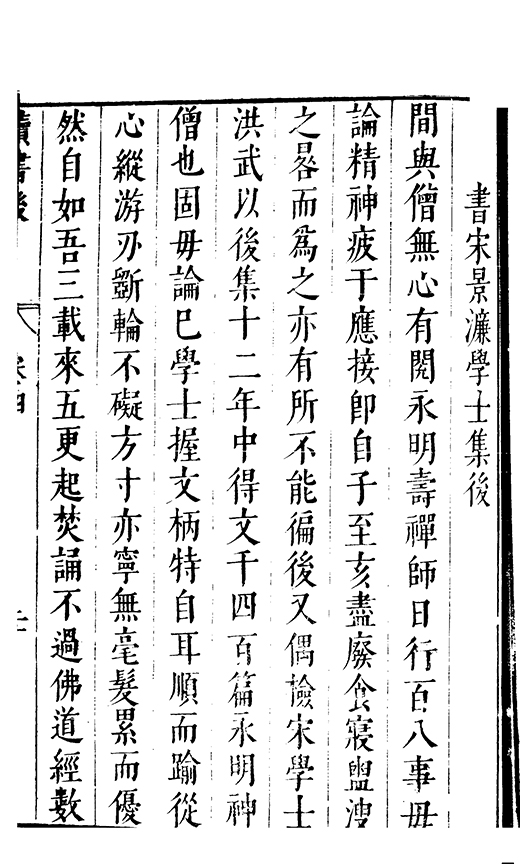 書宋景濂學士集後
間與僧無心有閱永明壽禪師日行百八事毋
論精神疲于應接即自子至亥盡廢食寢盥溲
之晷而爲之亦有所不能徧後又偶檢宋學士
洪武以後集十二年中得文千四百篇永明神
僧也固毋論巳學士握文柄特自耳順而踰從
心縱游刃斵輪不礙方寸亦寧無毫髮累而優
然自如吾三載來五更起焚誦不過佛道經數
讀書後
卷四